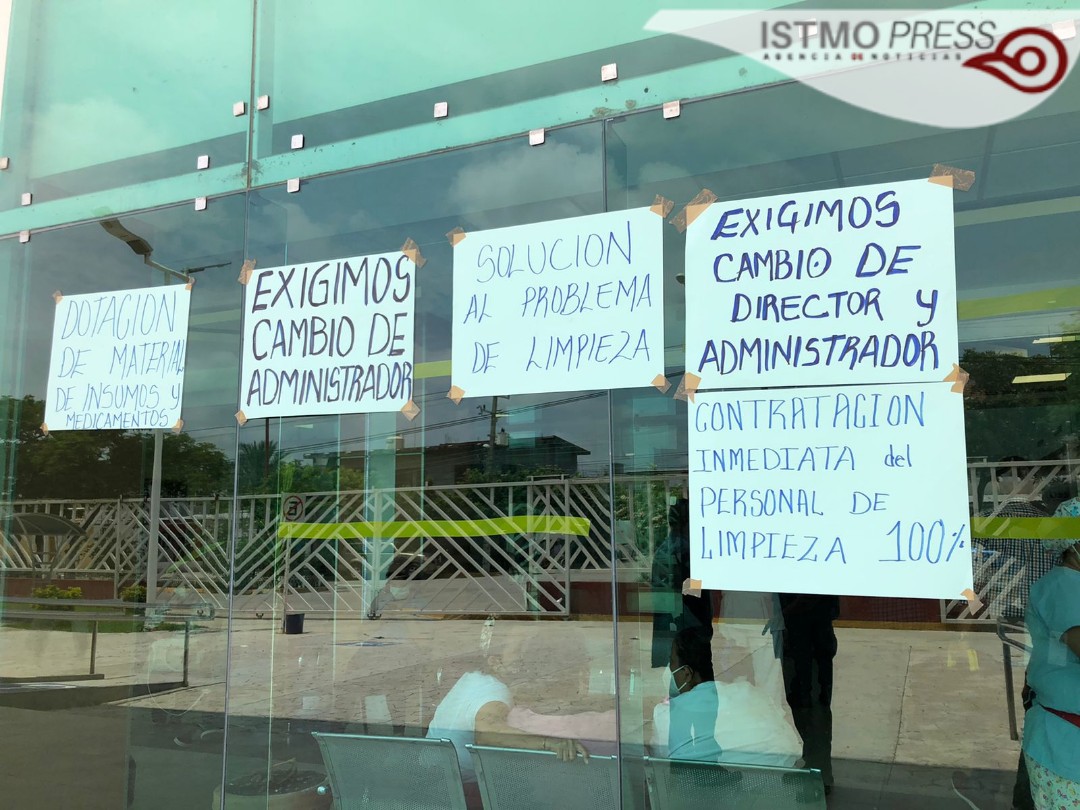 ISTMO PRESS
AGENCIA DE NOTICIAS
DOTACION
DE MATERIAL
DE INSUMOS y
MEDICAMENTOS
EXIGIMOS
CAMBIO DE
ADMINISTRADOR
SOLUCION
AL PROBLEMA
DE LIMPIEZA
EXIGIMOS
CAMBIO DE
DIRECTOR y
ADMINISTRADOR
CONTRATACION
INMEDIATA del
PERSONAL DE
LIMPIEZA 100%